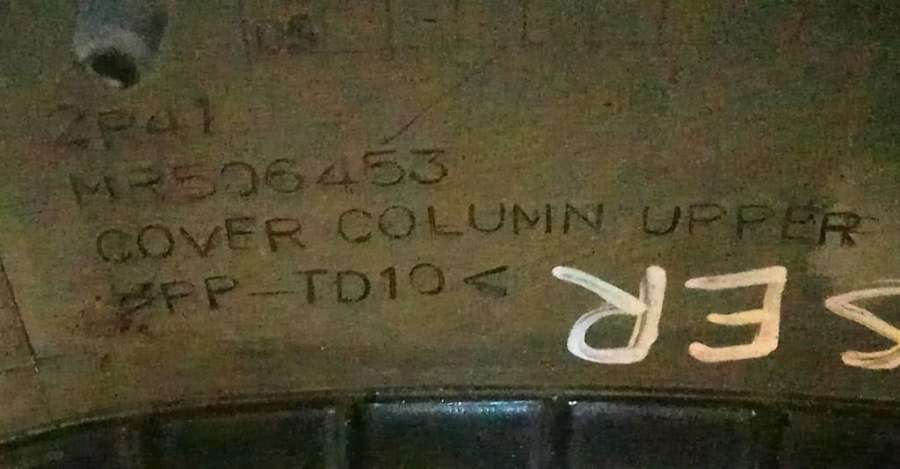 2P41
MR506453
COVER COLUMN UPPER
>PP-TD10<